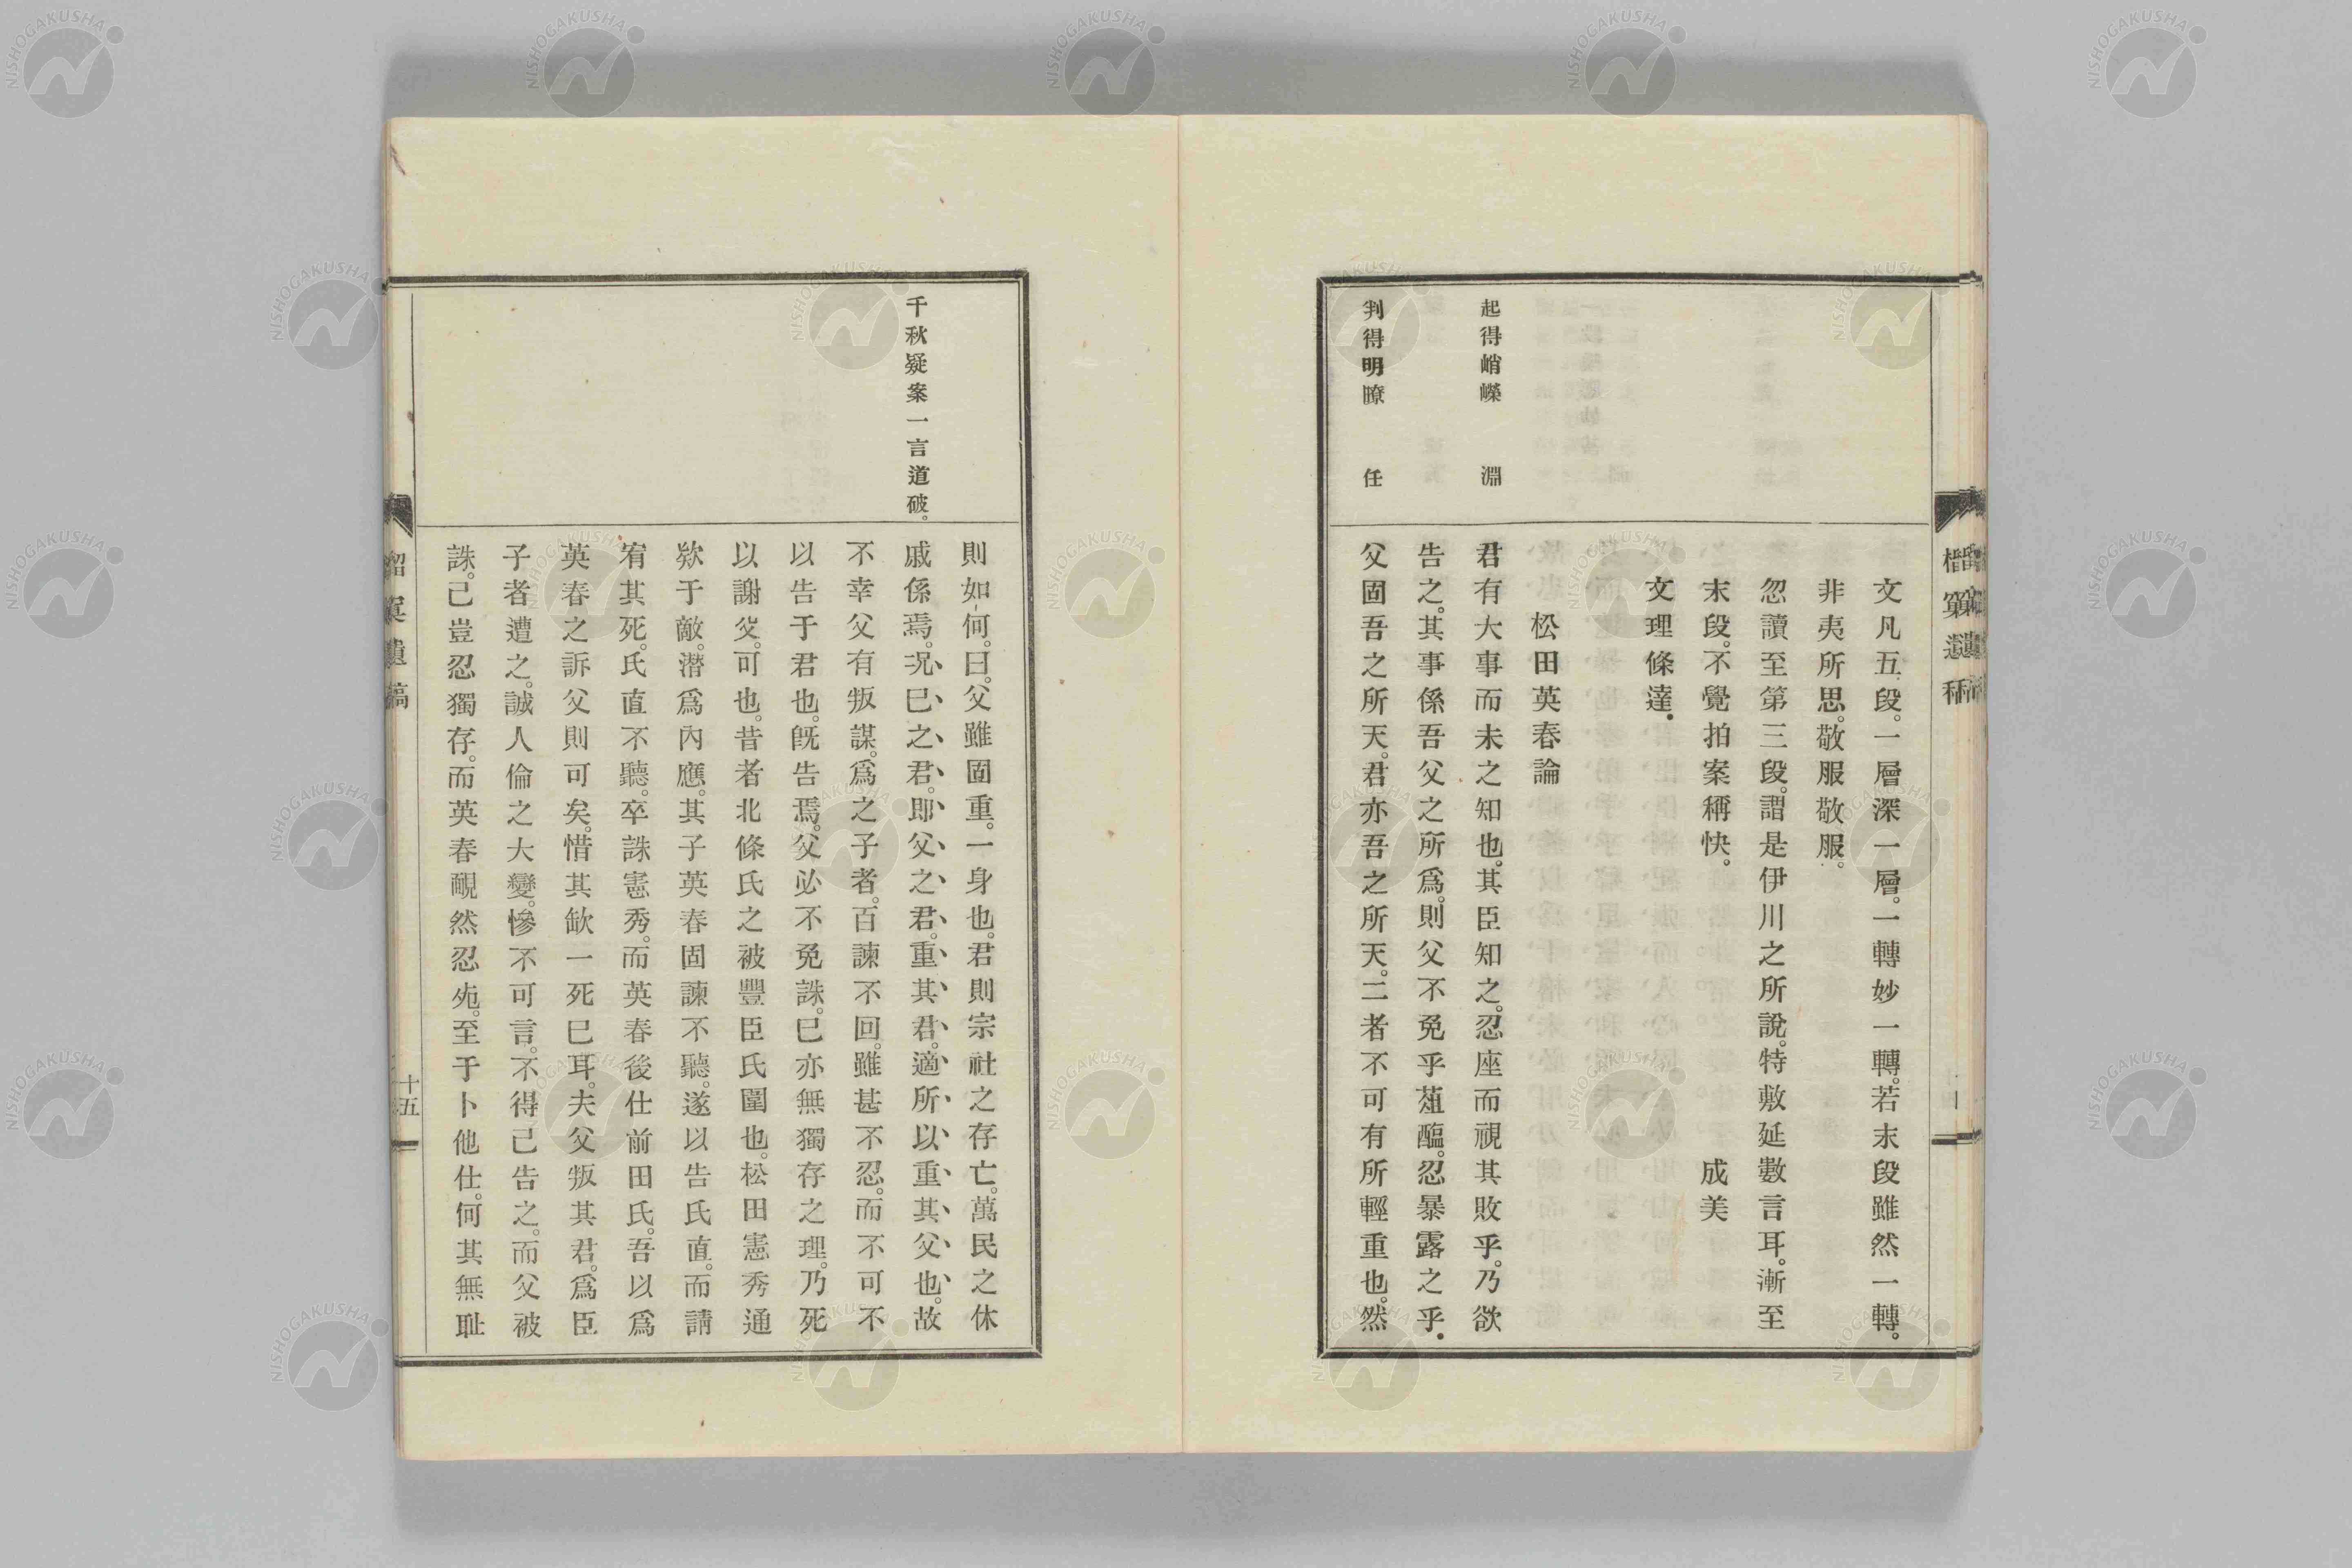 文凡五段。一層深一層。一轉妙一轉。若末段雖然一轉。
非夷所思。敬服敬服。
忽讀至第三段。謂是伊川之所說。特敷延數言耳。漸至
末段。不覺拍案稱快。 成美
文理條達。
松田英春論
起得峭嶸 淵
君有大事而未之知也。其臣知之。忍座而視其敗乎。乃欲
告之。其事係吾父之所爲。則父不免乎葅醢。忍暴露之乎。
判得明瞭 任
父固吾之所天。君亦吾之所天。二者不可有所輕重也。然
則如何。曰。父雖固重。一身也。君則宗社之存亡。萬民之休
千秋疑案一言道破。
戚係焉。况已之君。即父之君。重其君。適所以重其父也。故
不幸父有叛謀。爲之子者。百諫不回。雖甚不忍。而不可不
以告于君也。既告焉。父必不免誅。已亦無獨存之理。乃死
以謝父。可也。昔者北條氏之被豐臣氏圍也。松田憲秀通
欵于敵。潜爲內應。其子英春固諫不聽。遂以告氏直。而請
宥其死。氏直不聽。卒誅憲秀。而英春後仕前田氏。吾以爲
英春之訴父則可矣。惜其缺一死已耳。夫父叛其君。爲臣
子者遭之。誠人倫之大變。慘不可言。不得已告之。而父被
誅。己豈忍獨存。而英春靦然忍死。至于卜他仕。何其無耻
遺稿
十五